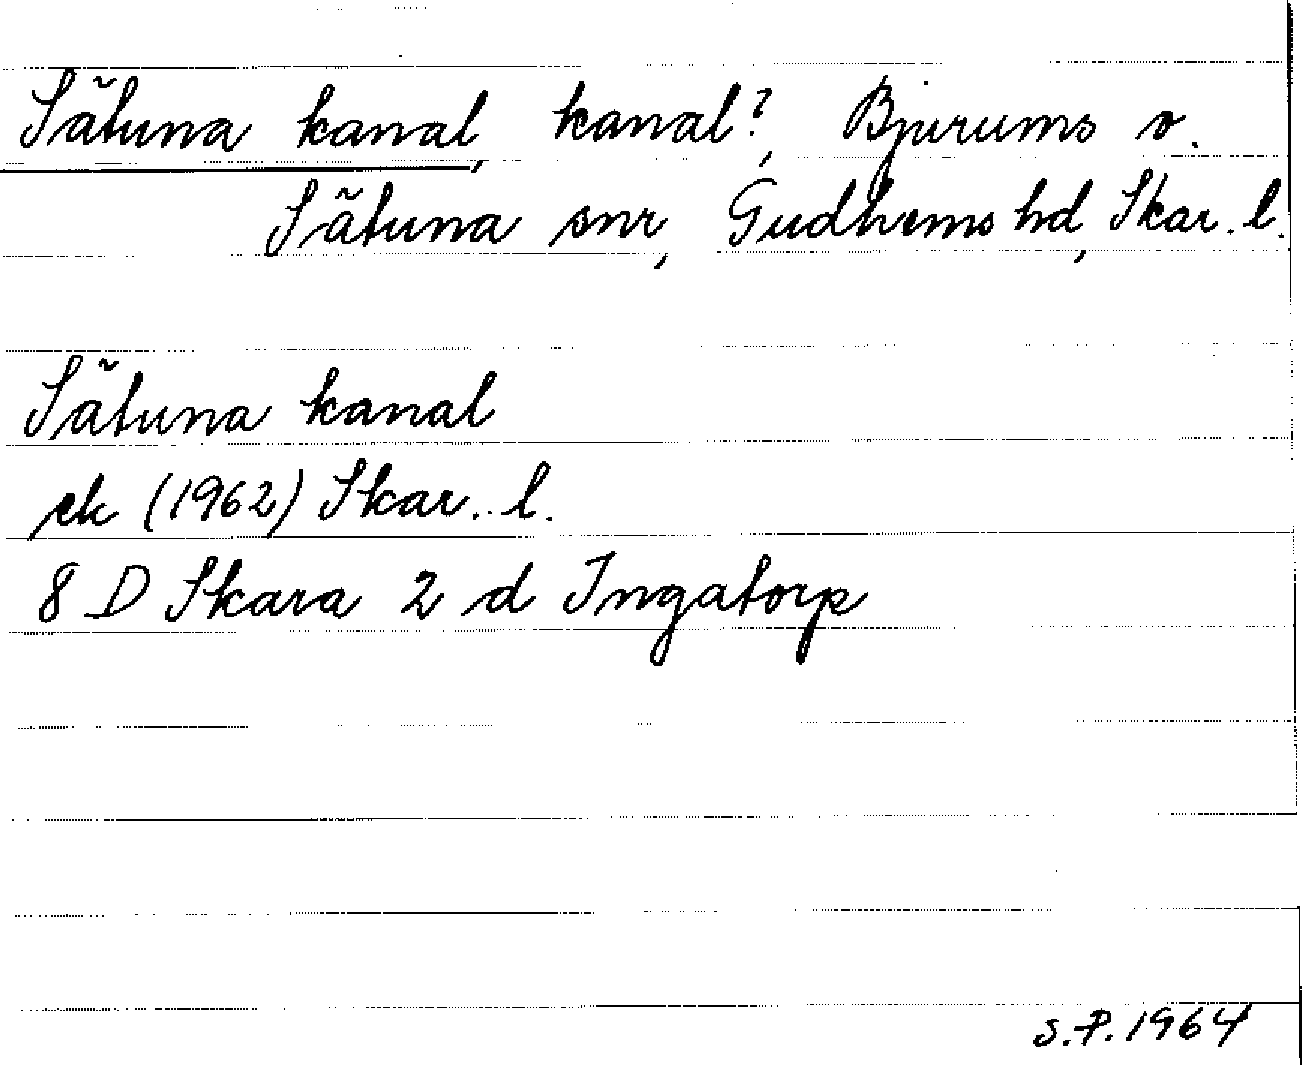 Sätuna kanal, kanal?, Bjurums o.
Sätuna snr, Gudhems hd, Skar. l.
Sätuna kanal
ek (1962) Skar. l.
8 D Skara 2 d Ingatorp
S.P. 1964